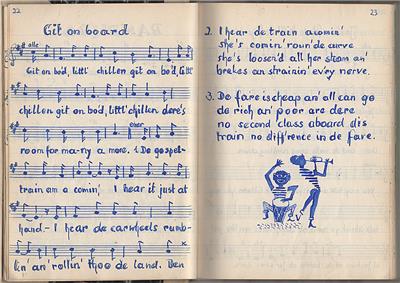 22
Git on board
Git on bo'd, littl' chillen git on bo'd, littl'
chillen git on bo'd, littl' chillen dere's
room for ma-ny a more. 1. De gospel-
train am a comin' I hear it just at
hand- I hear de carwheels rumb-
lin an' rollin' thoo de land. Den
23
2. I hear de train acomin'
she's comin' roun' de curve
she's loosen'd all her steam an'
brakes an strainin' ev'ry nerve.
3. De fare is cheap an' all can go
de rich an' poor are dere
no second class aboard dis
train no diff'rence in de fare.